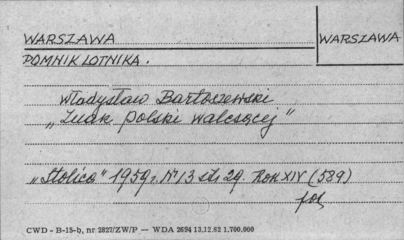 WARSZAWA
WARSZAWA
POMNIK LOTNIKA.
Władysław Bartoszewski
„Znak Polski walczącej"
„Stolica" 1959 r. Nr 13 str. 29. Rok XIV (589)
fot
CWD - B-15-b, nr 2827/ZW/P — WDA 2694 13.12.62 1.700.000